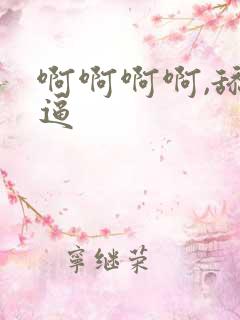 啊啊啊啊,舔
逼
寜继荣